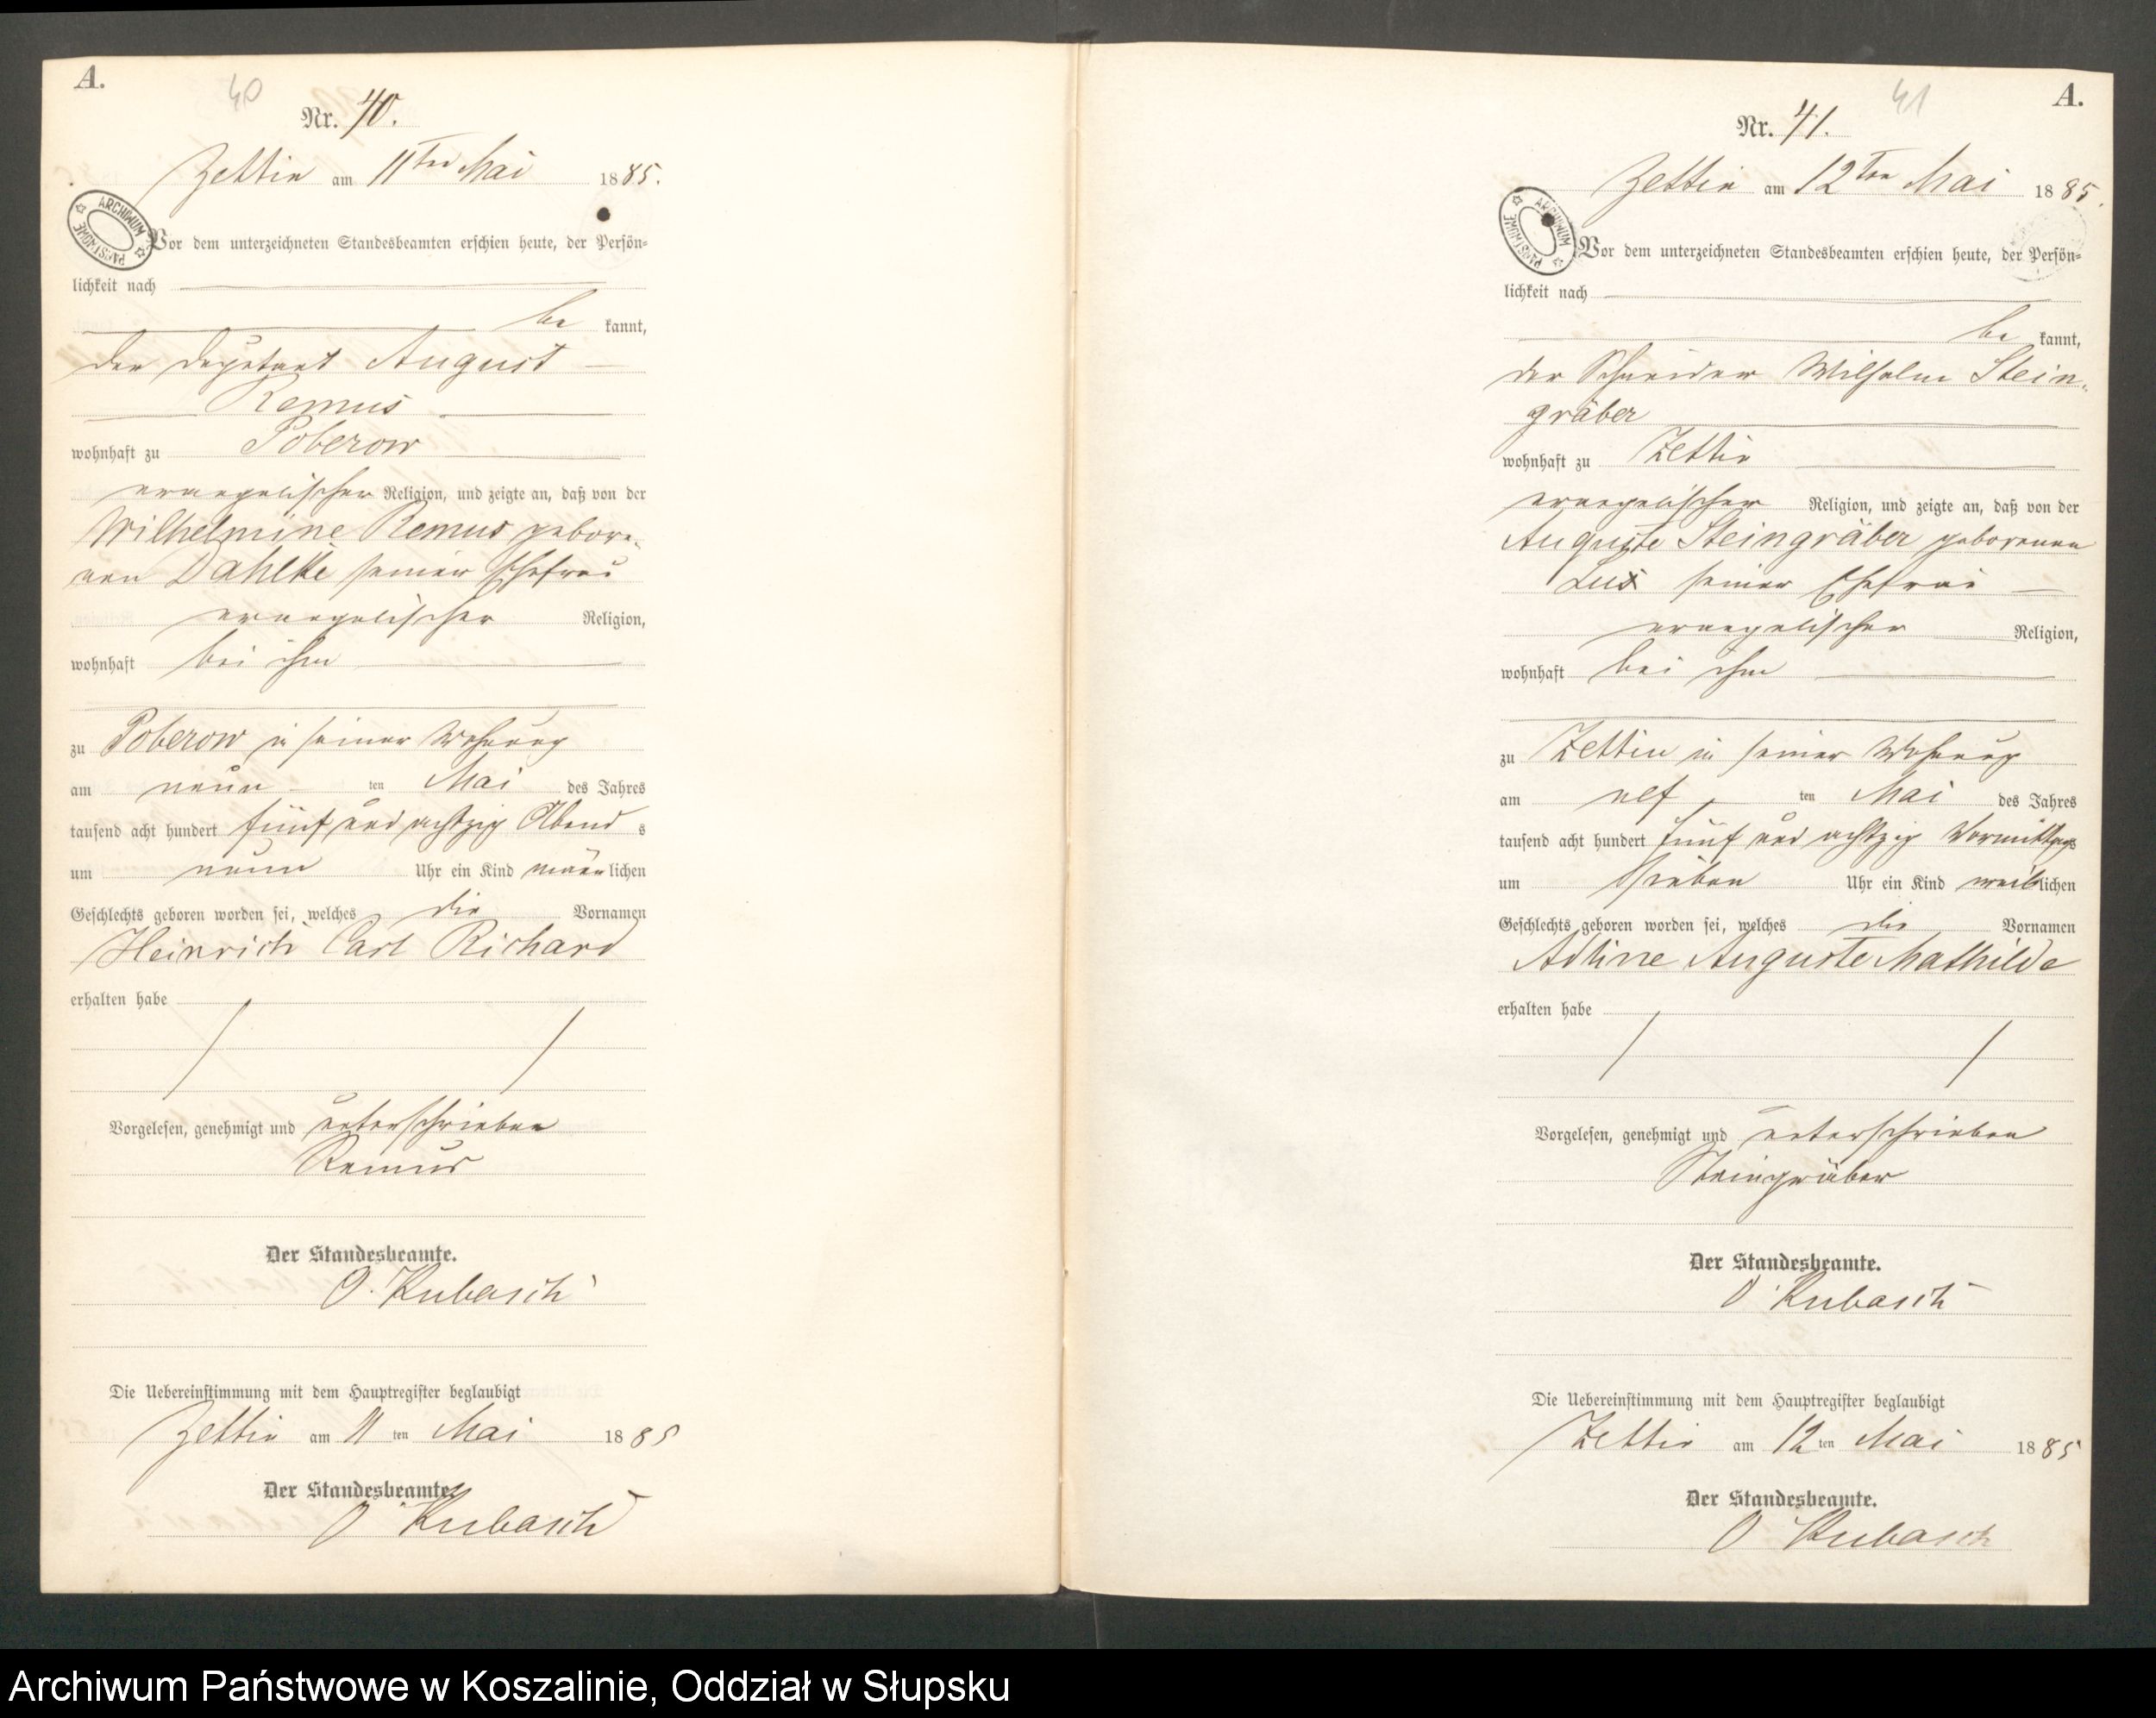 A.
40
Nr. 40.
Zettin am 11ten Mai 1885.
ARCHIWUM PAŃSTWOWE
Vor dem unterzeichneten Standesbeamten erschien heute, der Persön=
lichkeit nach
be kannt,
der Deputant August
Remus
wohnhaft zu Poberow
evangelischer Religion, und zeigte an, daß von der
Wilhelmine Remus gebore-
nen Dahlke seiner Ehefrau
evangelischer Religion,
wohnhaft bei ihm
zu Poberow in seiner Wohnung
am neun ten Mai des Jahres
tausend acht hundert fünf und achtzig Abend s
um neun Uhr ein Kind männlichen
Geschlechts geboren worden sei, welches die Vornamen
Heinrich Carl Richard
erhalten habe
Vorgelesen, genehmigt und unterschrieben
Remus
Der Standesbeamte.
O. Kubasch
Die Uebereinstimmung mit dem Hauptregister beglaubigt
Zettin am 11 ten Mai 1885
Der Standesbeamte.
O Kubasch
A.
41
Nr. 41.
Zettin am 12ten Mai 1885.
ARCHIWUM PAŃSTWOWE
Vor dem unterzeichneten Standesbeamten erschien heute, der Persön=
lichkeit nach
be kannt,
der Schneider Wilhelm Stein-
gräber
wohnhaft zu Zettin
evangelischer Religion, und zeigte an, daß von der
Auguste Steingräber geborenen
seiner Ehefrau
evangelischer Religion,
wohnhaft bei ihm
zu Zettin in seiner Wohnung
am elf ten Mai des Jahres
tausend acht hundert fünf und achtzig Vormittags
um sieben Uhr ein Kind weiblichen
Geschlechts geboren worden sei, welches die Vornamen
Auguste Mathilde
erhalten habe
Vorgelesen, genehmigt und unterschrieben
Steingräber
Der Standesbeamte.
O Kubasch
Die Uebereinstimmung mit dem Hauptregister beglaubigt
Zettin am 12 ten Mai 1885
Der Standesbeamte.
O Kubasch
Archiwum Państwowe w Koszalinie, Oddział w Słupsku